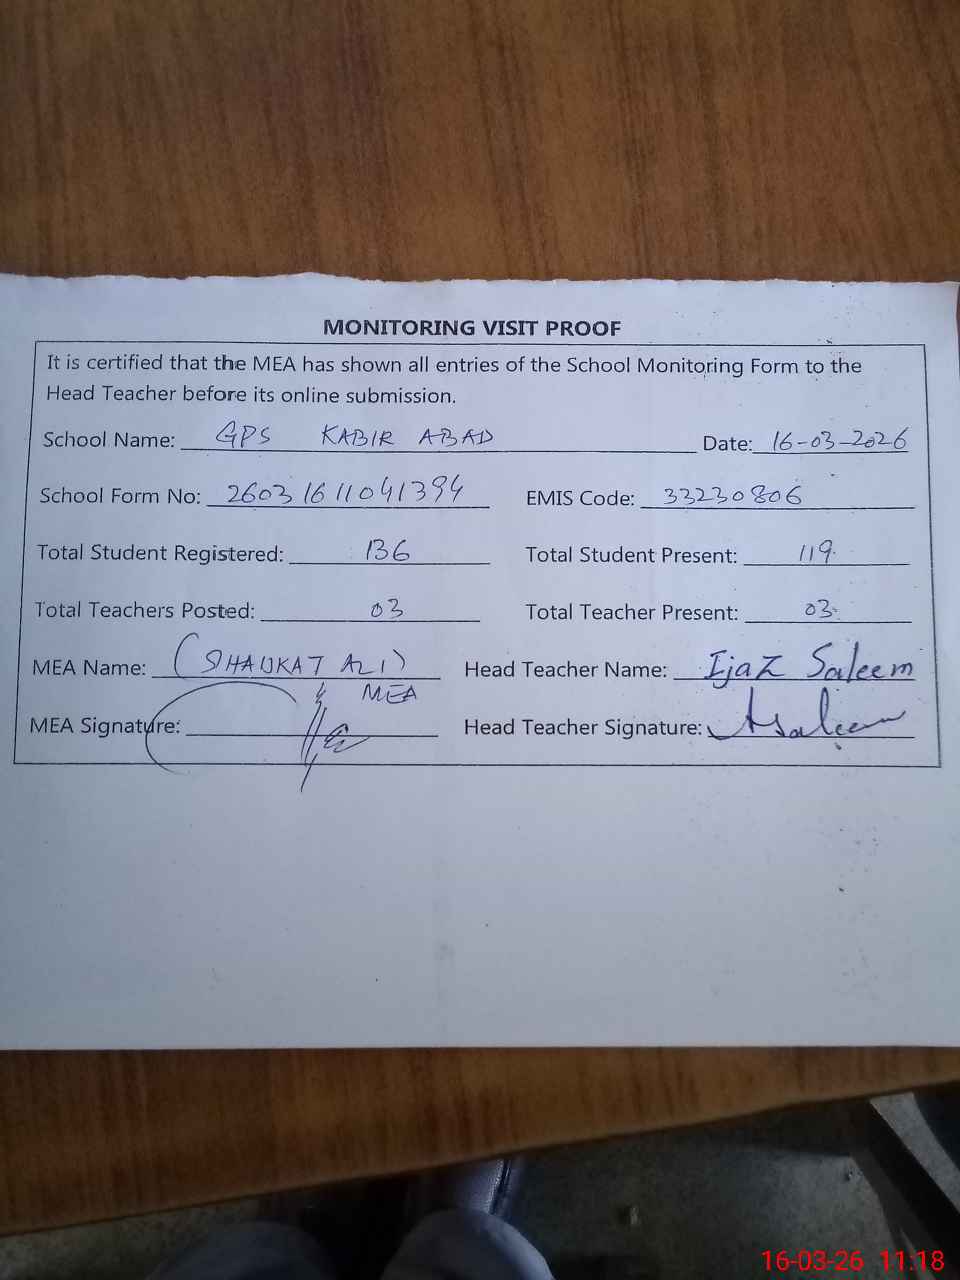 MONITORING VISIT PROOF
It is certified that the MEA has shown all entries of the School Monitoring Form to the
Head Teacher before its online submission.
School Name: GPS KABIR ABAD Date: 16-03-2026
School Form No: 26031611041394 EMIS Code: 33230806
Total Student Registered: 136 Total Student Present: 119
Total Teachers Posted: 03 Total Teacher Present: 03
MEA Name: (SHAUKAT ALI) Head Teacher Name: Ijaz Saleem
MEA
MEA Signature: Head Teacher Signature: Saleem
16-03-26 11:18